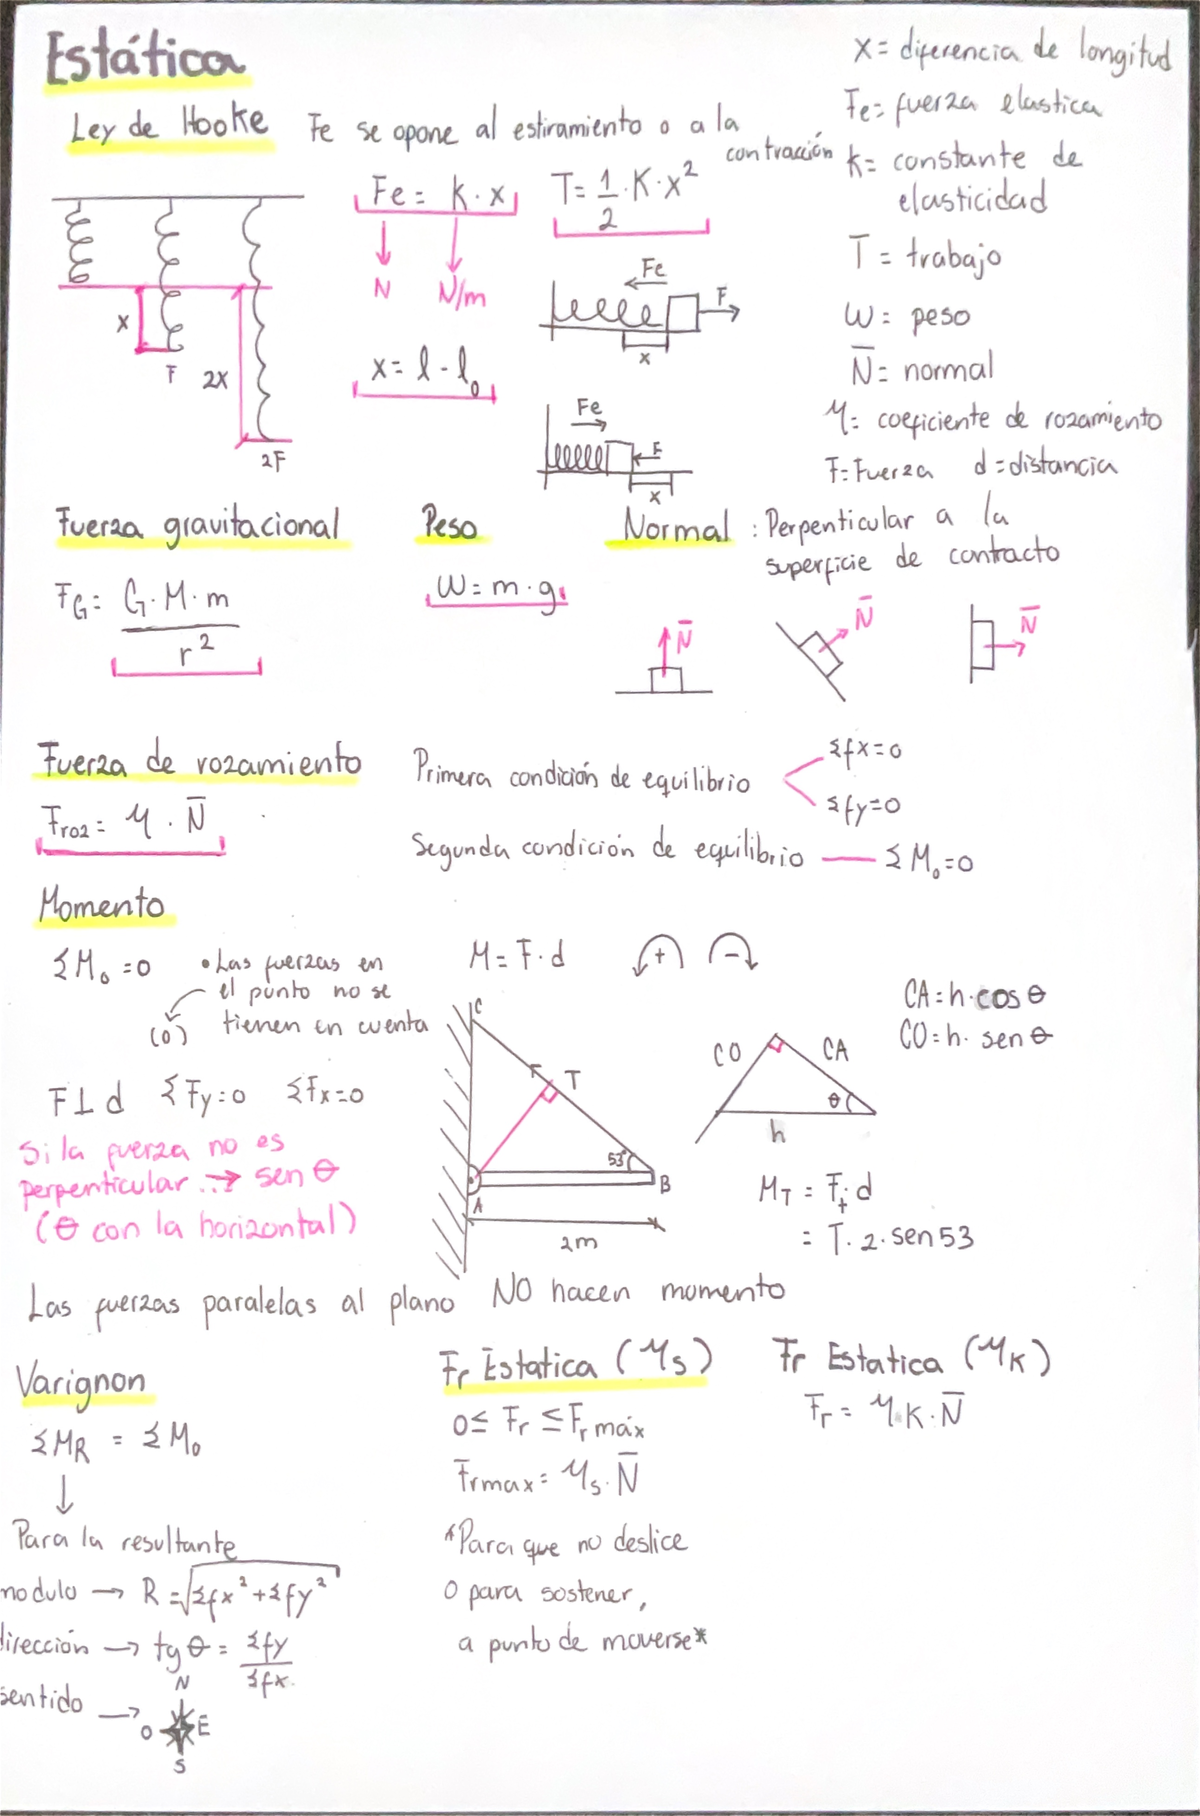 Estática
x = diferencia de longitud
Fe = fuerza elastica
K = constante de
elasticidad
T = trabajo
W = peso
N̅ = normal
μ = coeficiente de rozamiento
F = Fuerza d = distancia
Ley de Hooke Fe se opone al estiramiento o a la
contracción
Fe = K · x
N N/m
T = 1/2 · K · x²
x = l - l₀
x
F
2x
2F
Fe
F
x
Fe
F
x
Fuerza gravitacional
F_G = G · M · m / r²
Peso
W = m · g
Normal : Perpenticular a la
superficie de contacto
N̅
N̅
N̅
Fuerza de rozamiento
Froz = μ · N̅
Primera condición de equilibrio
Σfx = 0
Σfy = 0
Segunda condición de equilibrio — ΣM₀ = 0
Momento
ΣM₀ = 0
• Las fuerzas en
el punto no se
(0) tienen en cuenta
M = F · d
+
-
F ⊥ d ΣFy = 0 ΣFx = 0
Si la fuerza no es
perpenticular ..→ sen θ
(θ con la horizontal)
C
F T
53°
B
A
2m
CO CA
θ
h
CA = h · cos θ
CO = h · sen θ
M_T = F_t · d
= T · 2 · sen 53
Las fuerzas paralelas al plano NO hacen momento
Varignon
ΣM_R = ΣM₀
↓
Para la resultante
modulo → R = √Σfx² + Σfy²
dirección → tg θ = Σfy / Σfx.
sentido →
N
O E
S
Fr Estatica (μs)
0 ≤ Fr ≤ Fr máx
Frmax = μs · N̅
*Para que no deslice
O para sostener,
a punto de moverse*
Fr Estatica (μK)
Fr = μ.K · N̅